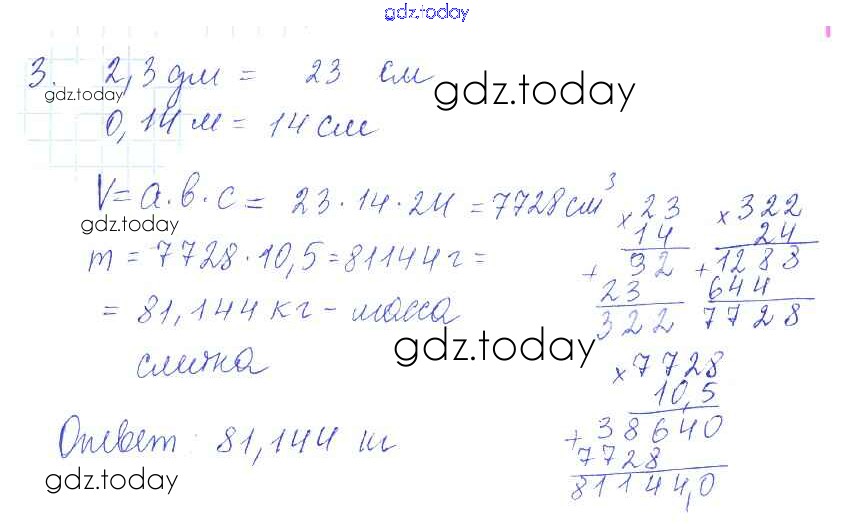 gdz.today
3. 2,3 дм = 23 см
gdz.today
gdz.today
0,14 м = 14 см
V = a · b · c = 23 · 14 · 24 = 7728 см³
gdz.today
m = 7728 · 10,5 = 81144 г =
= 81,144 кг - масса
слитка
gdz.today
Ответ: 81,144 кг
gdz.today
× 23
14
+ 92
23
322
× 322
24
+ 1288
644
7728
× 7728
10,5
+ 38640
7728
81144,0